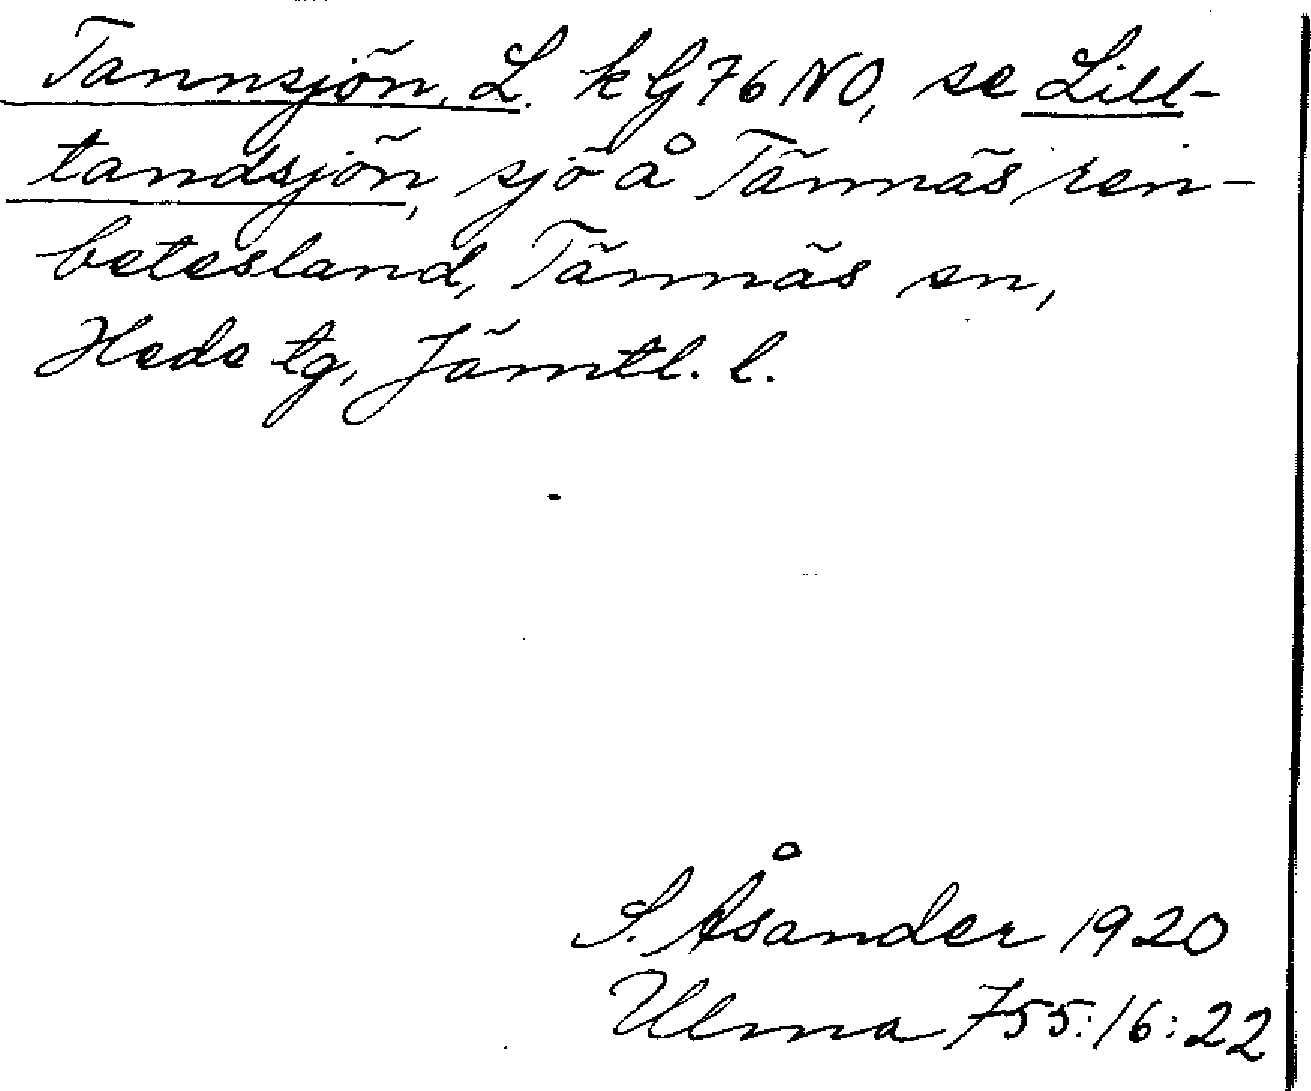 Tannsjön, L. kG76NO, se Lill-
tandsjön, sjö å Tännäs ren-
betesland, Tännäs sn,
Hede tg, Jämtl. l.
S. Åsander 1920
Ulma 755:16:22